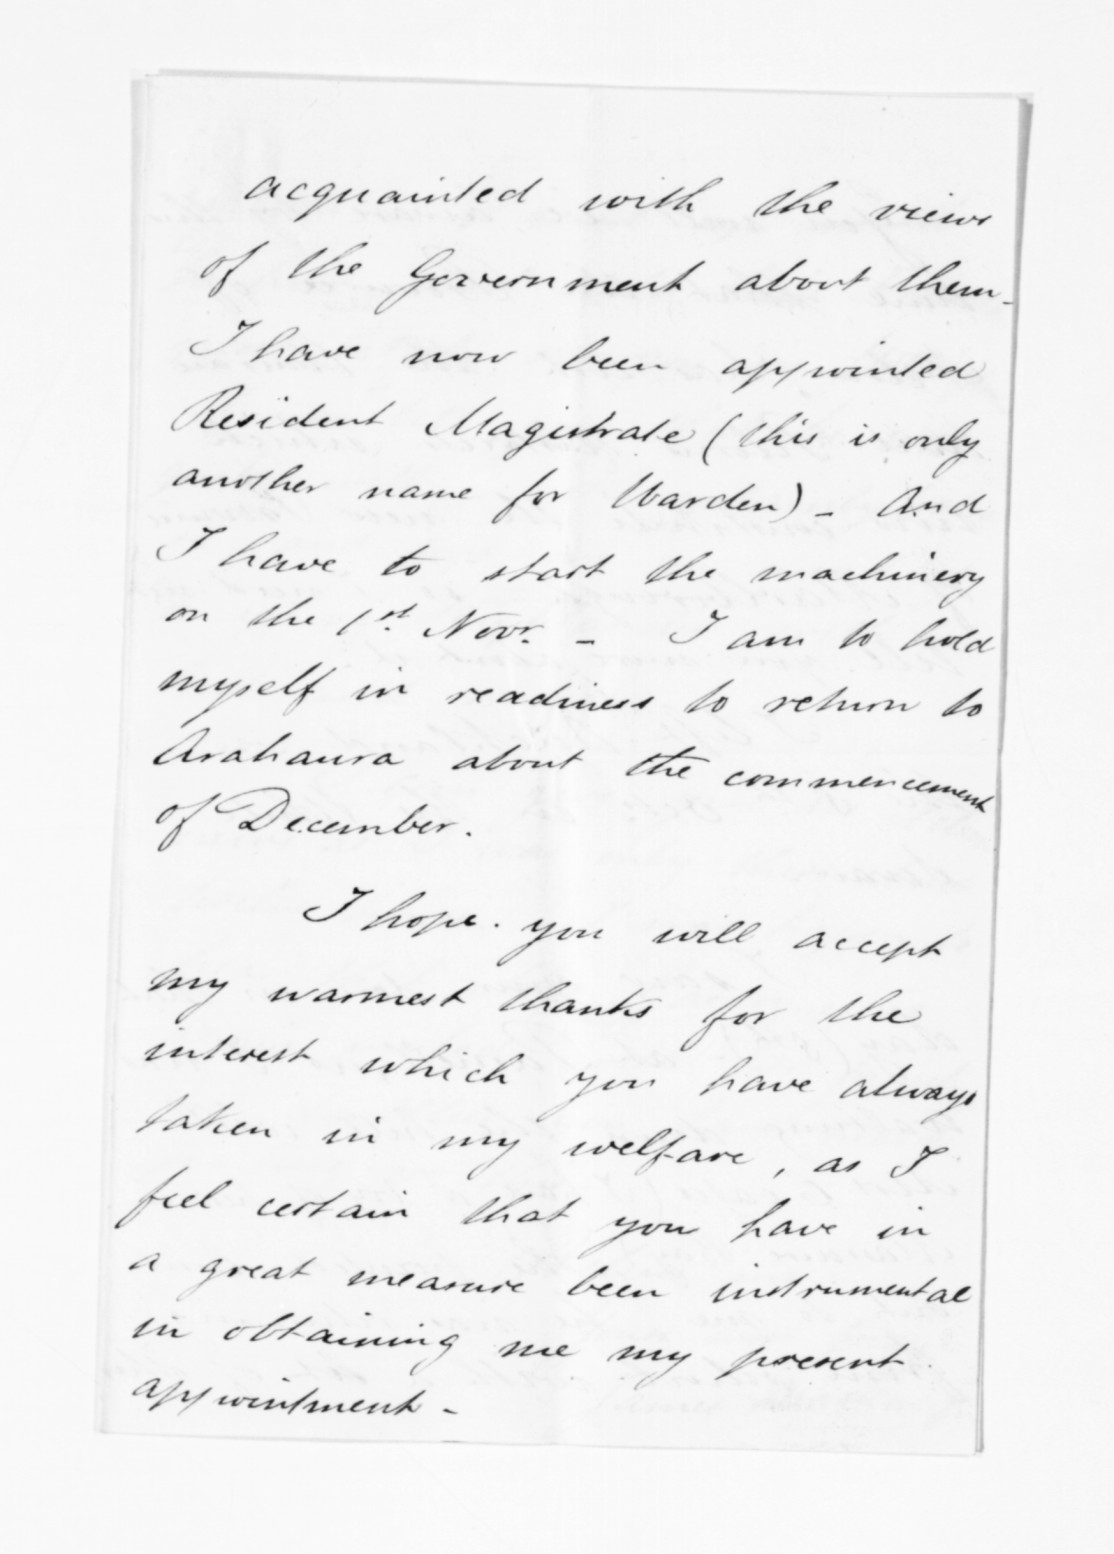 acquainted with the views
of the Government about them -
I have now been appointed
Resident Magistrate (this is only
another name for Warden) - And
I have to start the machinery
on the 1st Novr. - I am to hold
myself in readiness to return to
Arahaura about the commencement
of December.
I hope. you will accept
my warmest thanks for the
interest which you have always
taken in my welfare, as I
feel certain that you have in
a great measure been instrumental
in obtaining me my present
appointment -